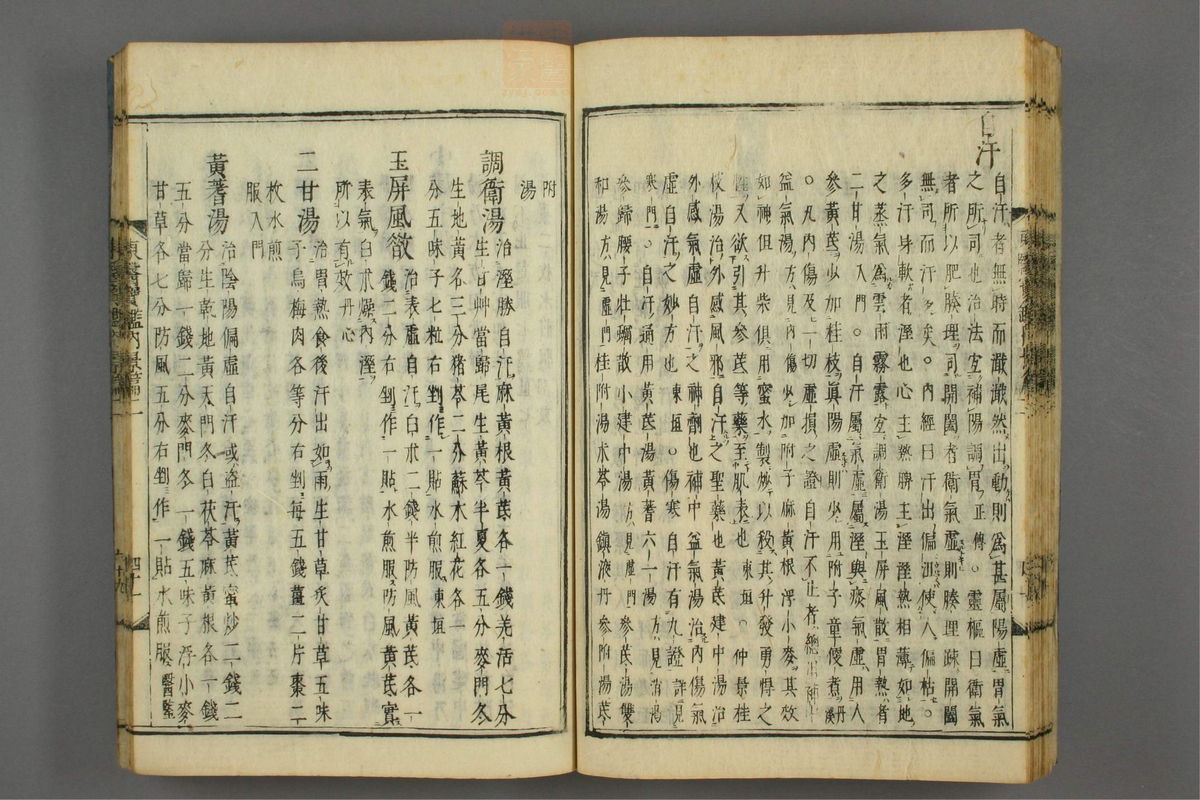 自汗
自汗者無時而濈濈然出動則爲甚屬陽虛胃氣
之所司也治法宜補陽調胃正傳○靈樞曰衛氣
者所以肥腠理司開闔者衛氣虛則腠理踈開闔
無司而汗多矣○內經曰汗出偏沮使人偏枯○
多汗身軟者溼也心主熱脾主溼溼熱相薄如地
之蒸氣爲雲雨霧露宜調衛湯玉屏風散胃熱者
二甘湯入門○自汗屬氣虛屬溼與痰氣虛用人
參黃芪少加桂枝眞陽虛則少用附子童便煮丹溪
○凡內傷及一切虛損之證自汗不止者總用補中
益氣湯方見內傷少加附子麻黃根浮小麥其效
如神但升柴俱用蜜水製炒以殺其升發勇悍之
性又欲引其參芪等藥至肌表也東垣○仲景桂
枝湯治外感風邪自汗之聖藥也黃芪建中湯治
外感氣虛自汗之神劑也補中益氣湯治內傷氣
虛自汗之妙方也東垣○傷寒自汗有九證詳見
寒門○自汗通用黃芪湯黃蓍六一湯方見消渴
參歸腰子牡蠣散小建中湯方見虛門參芪湯雙
和湯方見虛門桂附湯朮苓湯鎭液丹參附湯芪
附
湯
調衛湯 治溼勝自汗麻黃根黃芪各一錢羌活七分
生甘艸當歸尾生黃芩半夏各五分麥門冬
生地黃各三分猪苓二分蘇木紅花各一
分五味子七粒右剉作一貼水煎服東垣
玉屏風散 治表虛自汗白朮二錢半防風黃芪各一
錢二分右剉作一貼水煎服防風黃芪實
表氣白朮燥內溼
所以有效丹心
二甘湯 治胃熱食後汗出如雨生甘草炙甘草五味
子烏梅肉各等分右剉每五錢薑二片棗二
枚水煎
服入門
黃蓍湯 治陰陽偏虛自汗或盜汗黃芪蜜炒二錢二
分生乾地黃天門冬白茯苓麻黃根各一錢
五分當歸一錢二分麥門冬一錢五味子浮小麥
甘草各七分防風五分右剉作一貼水煎服醫鑒
東醫寶鑑內景篇二
四十一